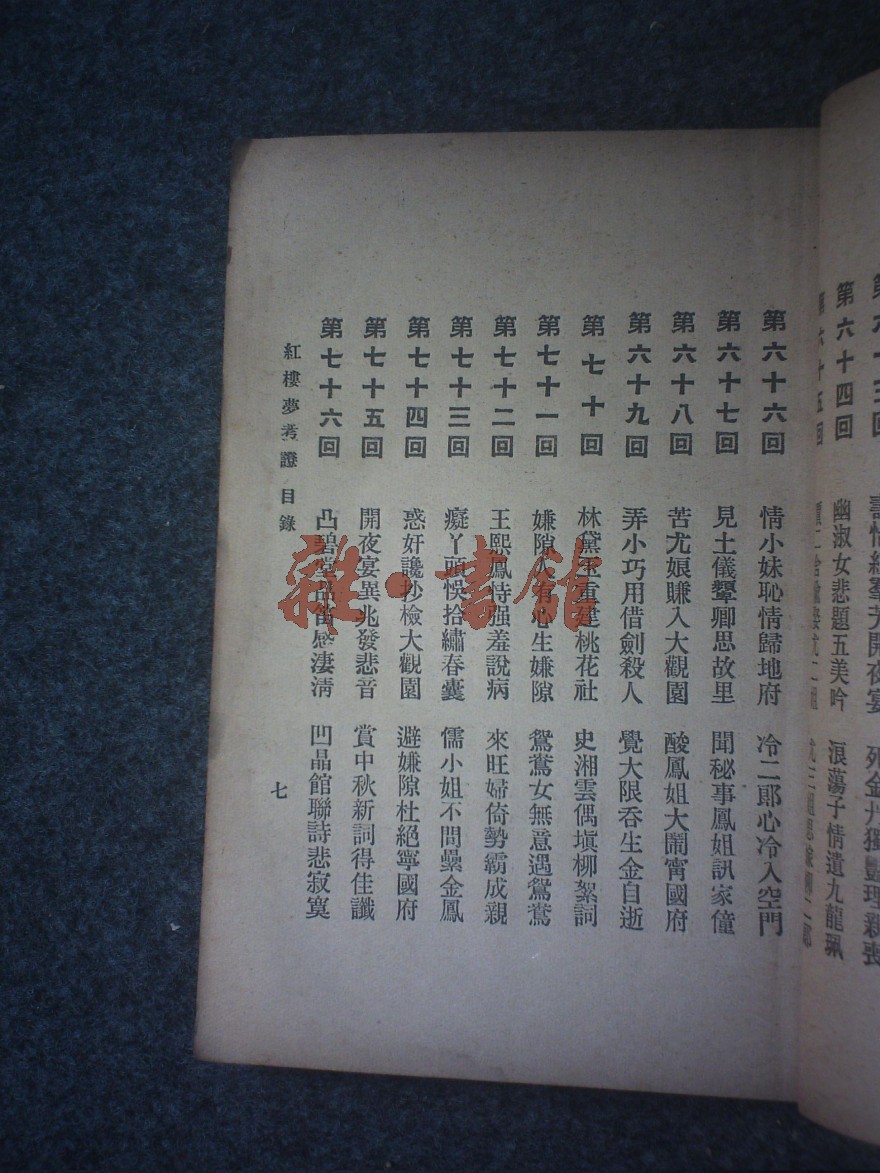 第六十四回　幽淑女悲題五美吟　浪蕩子情遺九龍珮
第六十五回
第六十六回　情小妹恥情歸地府　冷二郎心冷入空門
第六十七回　見土儀顰卿思故里　聞秘事鳳姐訊家僮
第六十八回　苦尤娘賺入大觀園　酸鳳姐大鬧甯國府
第六十九回　弄小巧用借劍殺人　覺大限吞生金自逝
第七十回　林黛玉重建桃花社　史湘雲偶塡柳絮詞
第七十一回　嫌隙人有心生嫌隙　鴛鴦女無意遇鴛鴦
第七十二回　王熙鳳恃强羞說病　來旺婦倚勢霸成親
第七十三回　癡丫頭悞拾繡春囊　儒小姐不問纍金鳳
第七十四回　惑奸讒抄檢大觀園　避嫌隙杜絕寧國府
第七十五回　開夜宴異兆發悲音　賞中秋新詞得佳讖
第七十六回　凸碧堂品笛感淒淸　凹晶館聯詩悲寂寞
紅樓夢考證　目錄
七
雜·書館